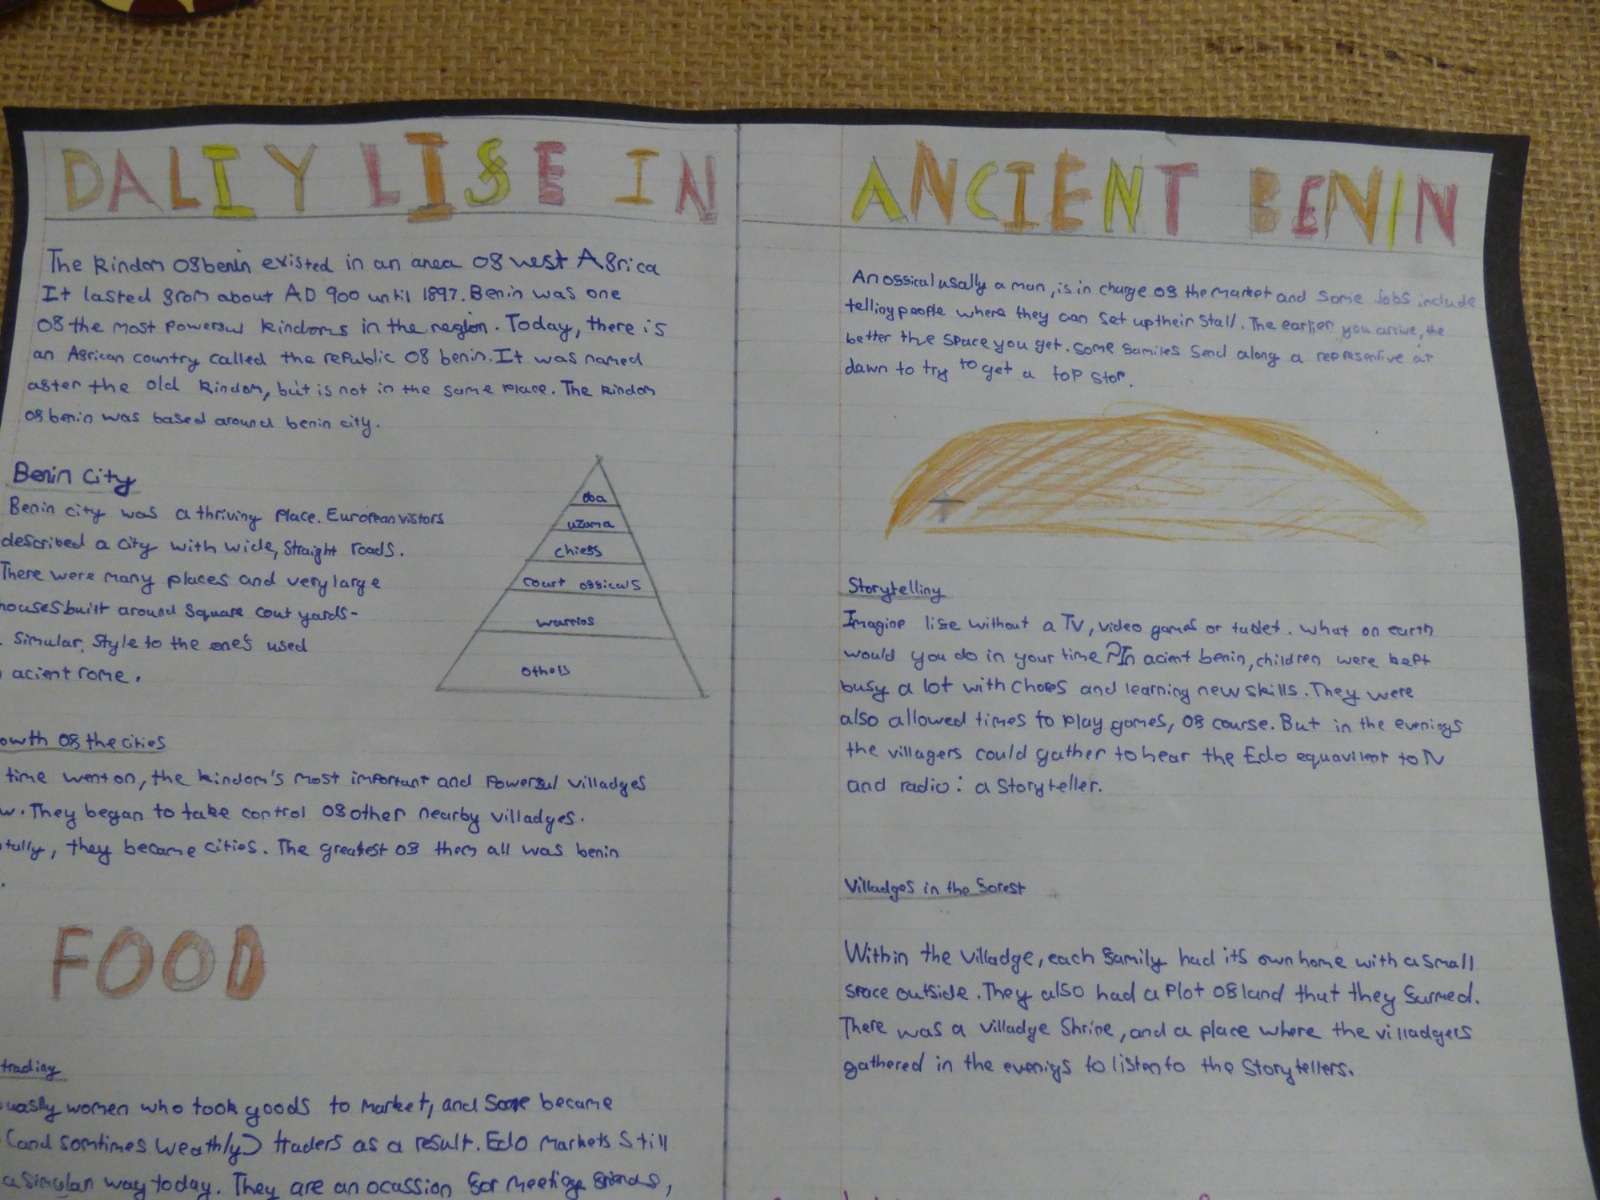 DALIY LIFE IN ANCIENT BENIN
The kindom of benin existed in an area of west Africa
It lasted from about AD 900 until 1897. Benin was one
of the most powerful kindoms in the region. Today, there is
an African country called the republic of benin. It was named
after the old kindom, but is not in the same place. The kindom
of benin was based around benin city.
Benin City
Benin city was a thriving place. European vistors
described a city with wide, straight roads.
There were many places and very large
houses built around square cout yards-
Simular style to the one's used
acient rome.
oba
uzama
chiefs
court officals
warrios
othols
owth of the cities
time went on, the kindom's most important and powerful villadges
w. They began to take control of other nearby villadges.
tully, they became cities. The greatest of them all was benin
FOOD
trading
uasly women who took goods to market, and some became
(and somtimes weathly) traders as a result. Edo markets still
a simular way today. They are an ocassion for meeting friends,
An offical usally a man, is in charge of the market and some jobs include
telling people where they can set up their stall. The earlier you arrive, the
better the space you get. Some familes send along a representive at
dawn to try to get a top stop.
Storytelling
Imagine life without a TV, video games or tablet. what on earth
would you do in your time? In acient benin, children were kept
busy a lot with chores and learning new skills. They were
also allowed times to play games, of course. But in the evenigs
the villagers could gather to hear the Edo equavilent to TV
and radio: a storyteller.
Villadges in the forest
Within the villadge, each family had its own home with a small
space outside. They also had a plot of land that they furmed.
There was a villadge shrine, and a place where the villadgers
gathered in the evenigs to listen to the storytellers.